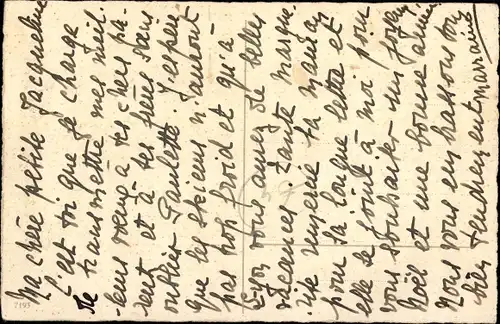 Ma chère petite Jacqueline
C'est toi que je charge
de transmettre mes meil-
leurs vœux à tes chers pa-
rent et à tes frères sans
oublier Paulette. J'espère
que les skieurs n'auront
pas trop froid et qu'à
Lyon vous aurez de belles
vacances. Tante
remercie ta maman
pour sa longue lettre et
elle se joint à moi pour
vous souhaiter un joyeux
Noël et une bonne année
Nous vous embrassons tous
bien tendrement
marraine
7195